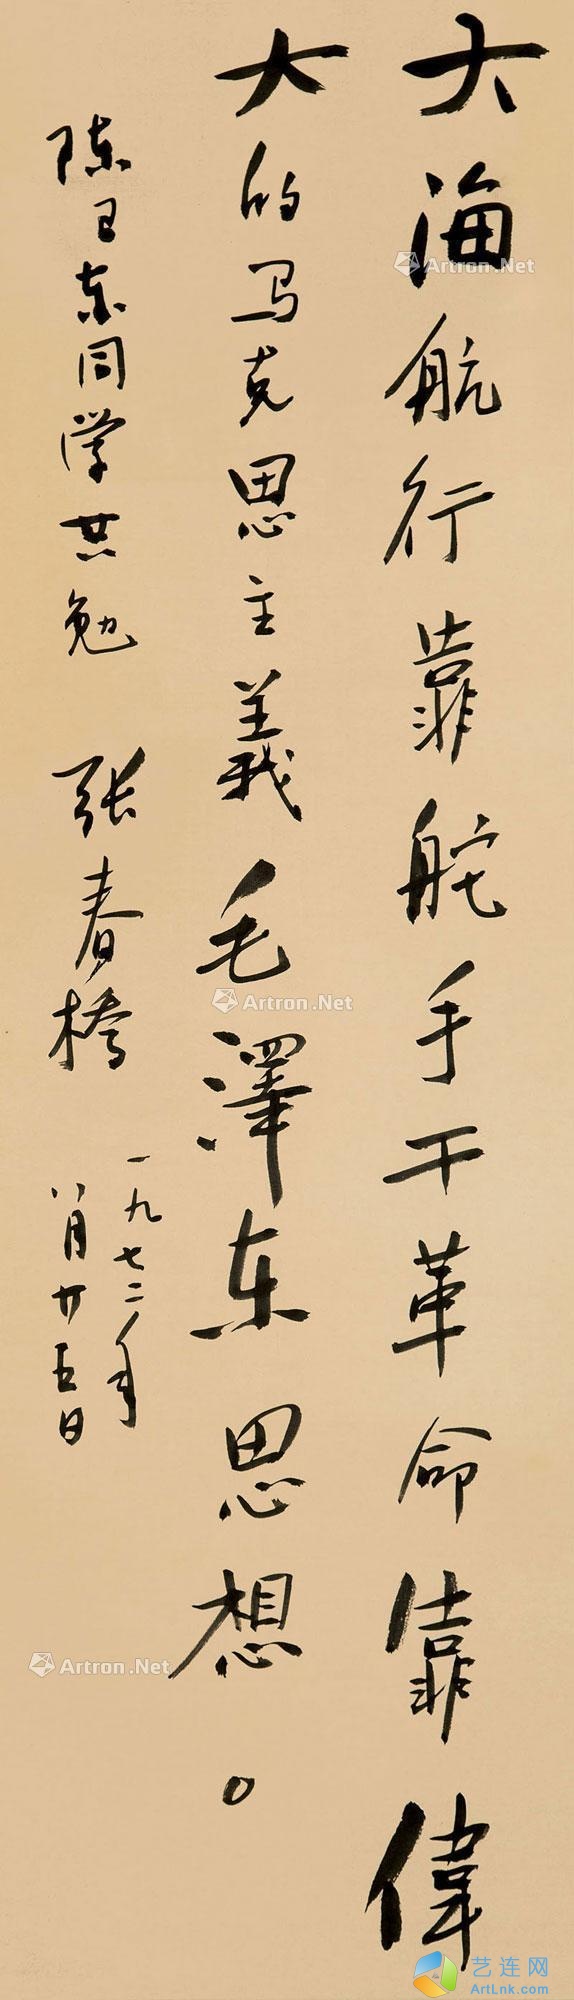 大海航行靠舵手干革命靠偉
大的马克思主義毛澤东思想。
陈卫东同学共勉 张春橋
一九七二年
八月廿五日
Artron.Net
Artron.Net
Artron.Net
艺连网
ArtLnk.com